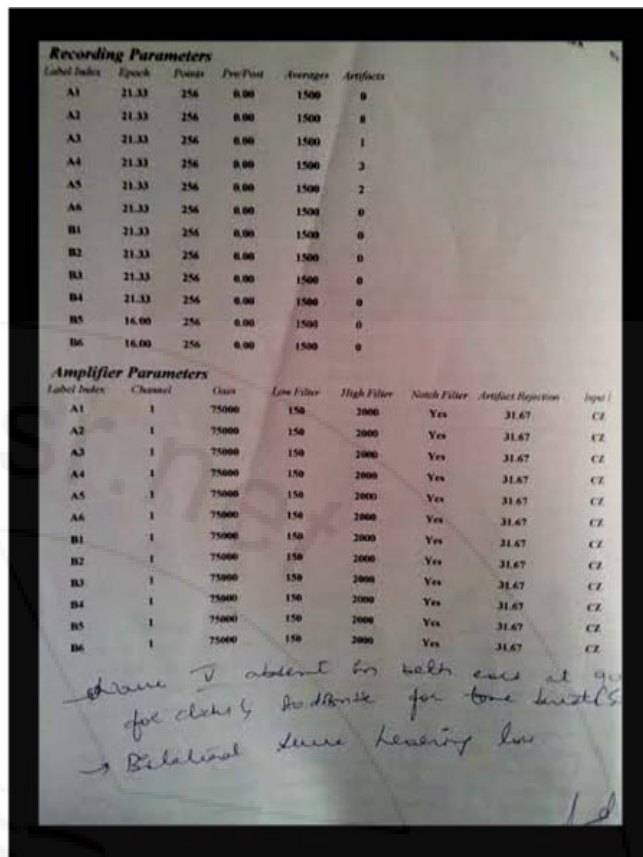 Recording Parameters
Label Index Epoch Points Pre/Post Averages Artifacts
A1 21.33 256 0.00 1500 0
A2 21.33 256 0.00 1500 8
A3 21.33 256 0.00 1500 1
A4 21.33 256 0.00 1500 3
A5 21.33 256 0.00 1500 2
A6 21.33 256 0.00 1500 0
B1 21.33 256 0.00 1500 0
B2 21.33 256 0.00 1500 0
B3 21.33 256 0.00 1500 0
B4 21.33 256 0.00 1500 0
B5 16.00 256 0.00 1500 0
B6 16.00 256 0.00 1500 0
Amplifier Parameters
Label Index Channel Gain Low Filter High Filter Notch Filter Artifact Rejection Input
A1 1 75000 150 2000 Yes 31.67 CZ
A2 1 75000 150 2000 Yes 31.67 CZ
A3 1 75000 150 2000 Yes 31.67 CZ
A4 1 75000 150 2000 Yes 31.67 CZ
A5 1 75000 150 2000 Yes 31.67 CZ
A6 1 75000 150 2000 Yes 31.67 CZ
B1 1 75000 150 2000 Yes 31.67 CZ
B2 1 75000 150 2000 Yes 31.67 CZ
B3 1 75000 150 2000 Yes 31.67 CZ
B4 1 75000 150 2000 Yes 31.67 CZ
B5 1 75000 150 2000 Yes 31.67 CZ
B6 1 75000 150 2000 Yes 31.67 CZ
V absent in both ears at 90
for for tone
→ Bilateral hearing loss